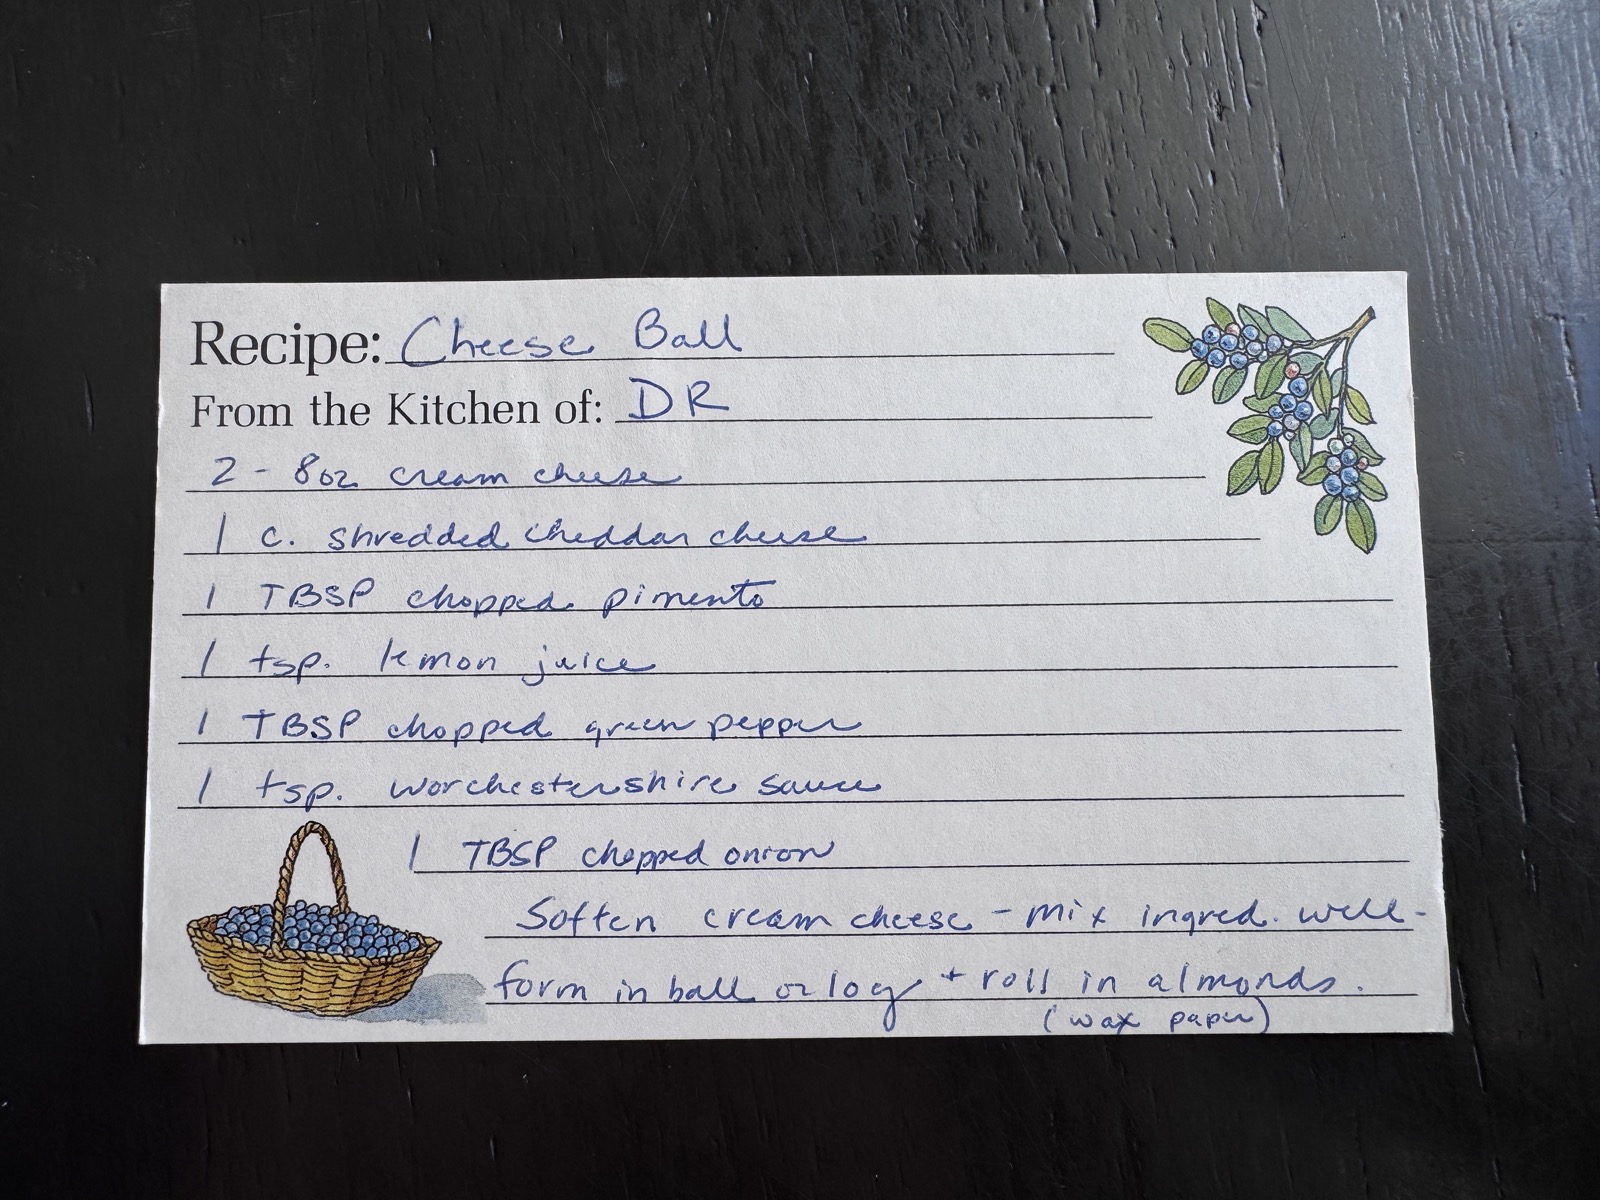 Recipe: Cheese Ball
From the Kitchen of: DR
2 - 8oz cream cheese
1 c. shredded cheddar cheese
1 TBSP chopped pimento
1 tsp. lemon juice
1 TBSP chopped green pepper
1 tsp. worchestershire sauce
1 TBSP chopped onion
Soften cream cheese - mix ingred. well -
form in ball or log + roll in almonds.
(wax paper)